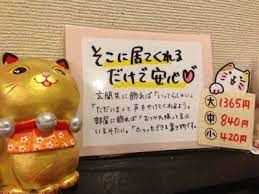 そこに居てくれる
だけで安心
玄関先に飾れば「いってらっしゃい」
「ただいま」と声をかけてくれるよう。
部屋に飾れば「おつかれ様」と言え
いきみたい。「ホッ」とできる置き物です。
大 1365円
中 840円
小 420円